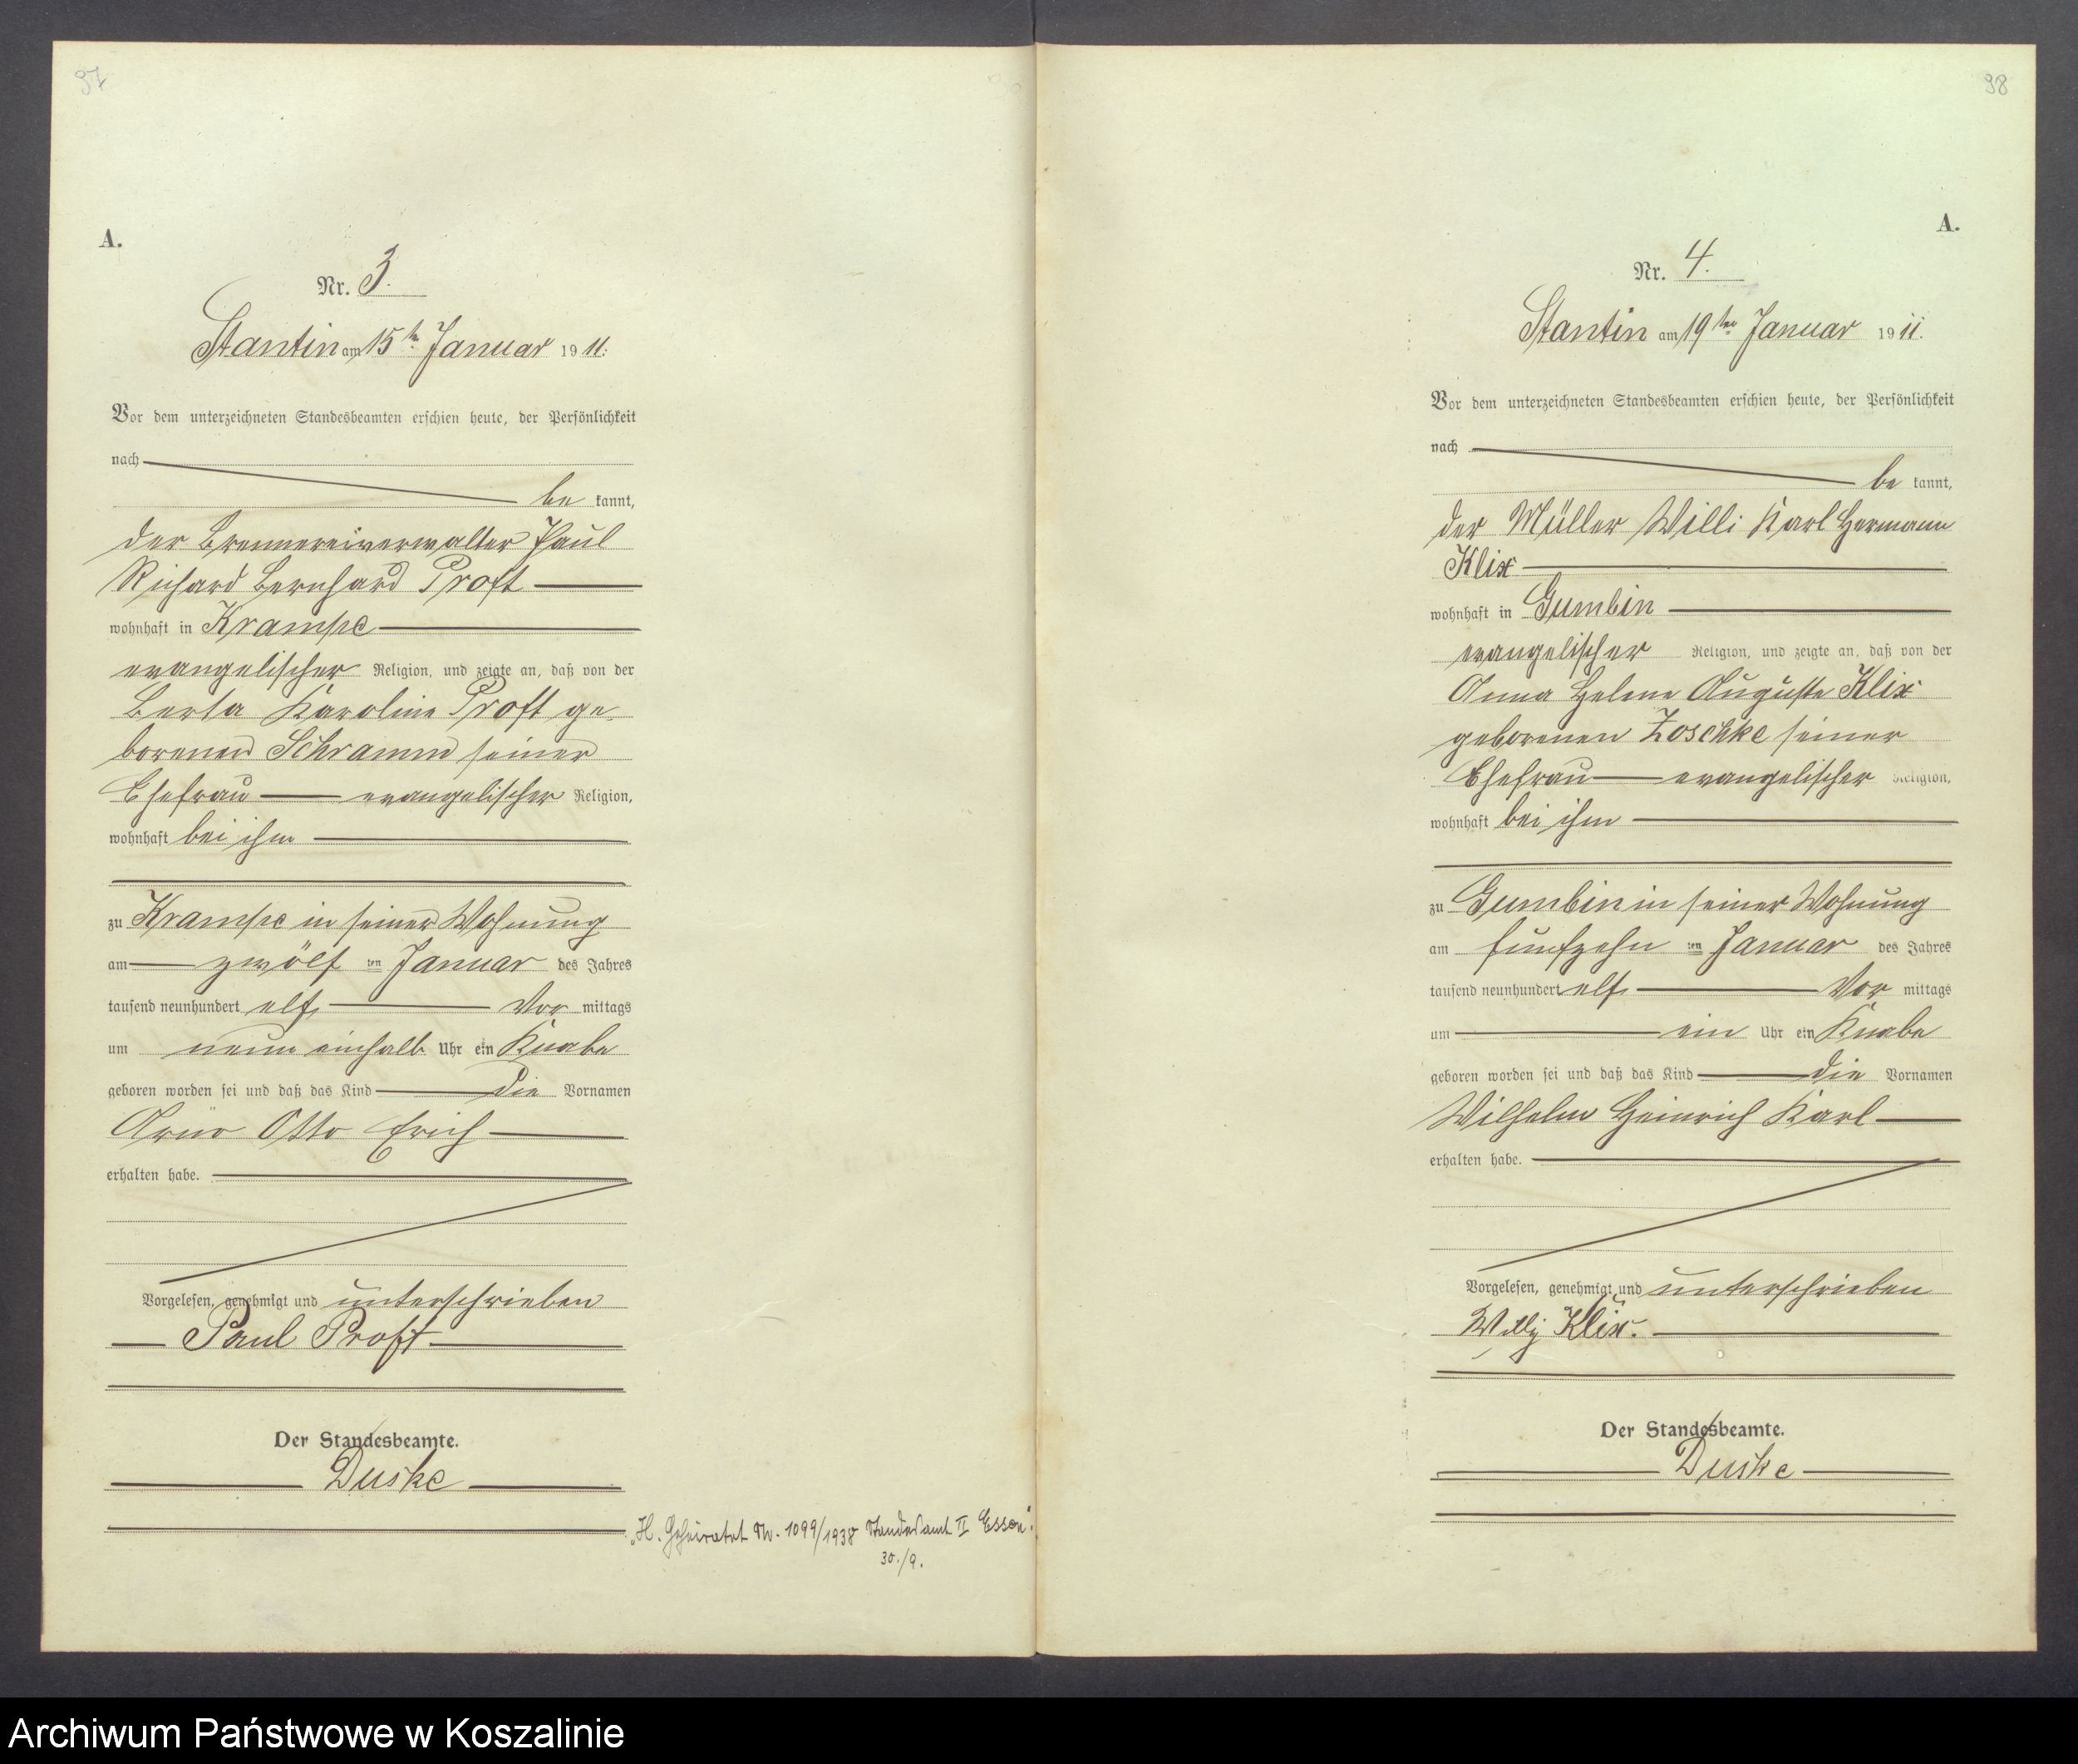 97
A.
Nr. 3.
Stantin am 15ten Januar 1911.
Vor dem unterzeichneten Standesbeamten erschien heute, der Persönlichkeit
nach
be kannt,
der Brennereiverwalter Paul
Richard Bernhard Proft
wohnhaft in Krampe
evangelischer Religion, und zeigte an, daß von der
Berta Karoline Proft ge
borenen Schramm seiner
Ehefrau evangelischer Religion,
wohnhaft bei ihm
zu Krampe in seiner Wohnung
am zwölf ten Januar des Jahres
tausend neunhundert elf Vor mittags
um neun einhalb Uhr ein Knabe
geboren worden sei und daß das Kind die Vornamen
Otto Erich
erhalten habe.
Vorgelesen, genehmigt und unterschrieben
Paul Proft
Der Standesbeamte.
Duske
„H. Geheiratet Nr. 1099/1938 Standesamt II Essen“.
30./9.
98
A.
Nr. 4.
Stantin am 19ten Januar 1911.
Vor dem unterzeichneten Standesbeamten erschien heute, der Persönlichkeit
nach
be kannt,
der Müller Willi Karl Hermann
Klix
wohnhaft in Gumbin
evangelischer Religion, und zeigte an, daß von der
Anna Helene Auguste Klix
geborenen Zoschke seiner
Ehefrau evangelischer Religion,
wohnhaft bei ihm
zu Gumbin in seiner Wohnung
am fünfzehn ten Januar des Jahres
tausend neunhundert elf Vor mittags
um ein Uhr ein Knabe
geboren worden sei und daß das Kind die Vornamen
Wilhelm Heinrich Karl
erhalten habe.
Vorgelesen, genehmigt und unterschrieben
Willy Klix.
Der Standesbeamte.
Duske
Archiwum Państwowe w Koszalinie